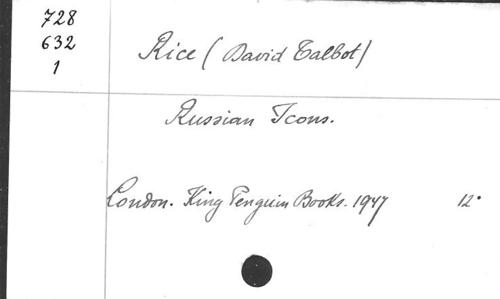 728
632
1
Rice (David Talbot)
Russian Icons.
London. King Penguin Books. 1947 12°